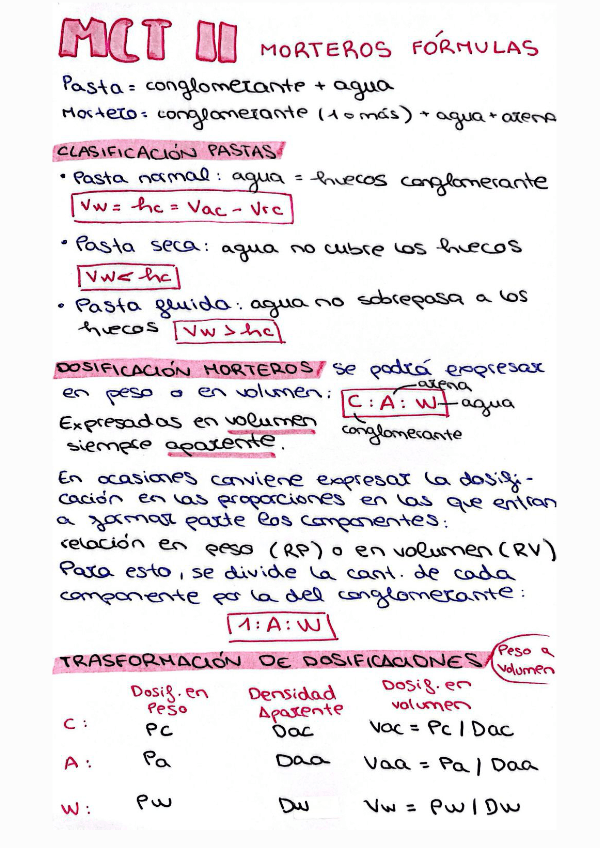 MCT II MORTEROS FÓRMULAS
Pasta = conglomerante + agua
Mortero = conglomerante (1 o más) + agua + arena
CLASIFICACIÓN PASTAS
• Pasta normal: agua = huecos conglomerante
Vw = hc = Vac - Vrc
• Pasta seca: agua no cubre los huecos
Vw < hc
• Pasta fluida: agua no sobrepasa a los
huecos Vw > hc
DOSIFICACIÓN MORTEROS se podrá expresar
en peso o en volumen: C : A : W
arena
agua
conglomerante
Expresadas en volumen
siempre aparente.
En ocasiones conviene expresar la dosifi-
cación en las proporciones en las que entran
a formar parte los componentes:
relación en peso (RP) o en volumen (RV)
Para esto, se divide la cant. de cada
componente por la del conglomerante:
1 : A : W
TRASFORMACIÓN DE DOSIFICACIONES Peso a
volumen
Dosif. en Peso Densidad Aparente Dosif. en volumen
C: Pc Dac Vac = Pc / Dac
A: Pa Daa Vaa = Pa / Daa
W: Pw Dw Vw = Pw / Dw